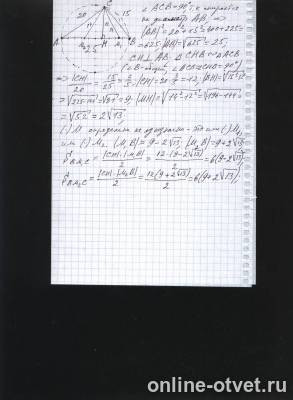 C
20
15
14
12
A
M
2,5
H
M₁
B
∠ACB=90°, т.к. опирается
на диаметр AB,
|AB|=20²+15²=400+225=
=625; |AB|=√625=25;
CH⊥AB. ΔCHB~ΔACB
(∠B-общий, ∠ACB=∠CHB=90°)
⇒ |CH|/20 = 15/25 = 3/5 ⇒ |CH|=20·3/5=12, |BH|=√15²-12²=
=√225-144=√81=9; |MH|=√14²-12²=√196-144=
=√52=2√13;
(·)M определен не однозначно - это или (·)M₁
или (·)M₂. |M₁B|=9-2√13; |M₂B|=9+2√13
S BM₁C = |CH|·|M₁B|/2 = 12·(9-2√13)/2 = 6(9-2√13);
S BM₂C = |CH|·|M₂B|/2 = 12(9+2√13)/2 = 6(9+2√13);
online-otvet.ru